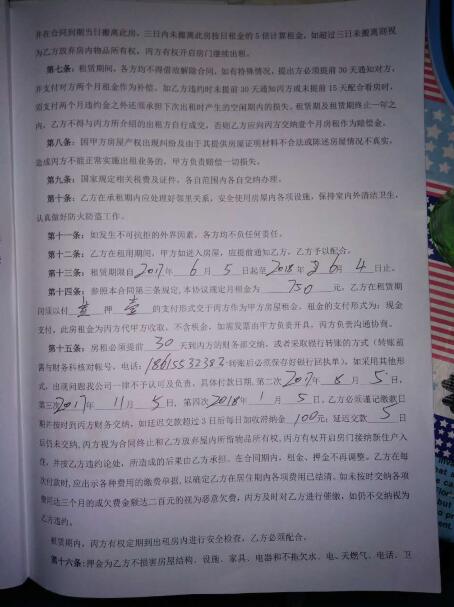 并在合同到期当日搬离此房，三日内未搬离此房按日租金的5倍计算租金，如超过三日未搬离则视
为乙方放弃房内物品所有权，丙方有权开启房门继续出租。
第七条：租赁期间，各方均不得借故解除合同，如有特殊情况，提出方必须提前30天通知对方，
并支付对方两个月租金作为补偿。如乙方违约时未提前30天通知丙方或未提前15天配合看房时，
需支付两个月违约金之外还须承担下次出租时产生的空闲期内的损失。租赁期及租赁期终止一年之
内，乙方不得与丙方所介绍的出租方自行成交，否则乙方应向丙方交纳壹个月房租作为赔偿金。
第八条：因甲方房屋产权出现纠纷及由于其提供房屋证明材料不合法或陈述房屋情况不真实，
造成丙方不能正常实施出租业务的，甲方负责赔偿一切损失。
第九条：国家规定相关税费及证件，各自范围内各自交纳办理。
第十条：乙方在承租期内应处理好邻里关系，安全使用房屋内各项设施，保持室内外清洁卫生，
认真做好防火防盗工作。
第十一条：如发生不可抗拒的外界因素，各方均不负任何责任。
第十二条：乙方在租用期间，甲方如进入房屋，应提前通知乙方，乙方予以配合。
第十三条：租赁期限自2017年 6 月 5 日起至2018年 6月 4 日止。
第十四条：参照本合同第三条规定，本协议规定月租金为 750 元，乙方在租赁期
间须以付 壹 押 壹 的支付形式交于丙方作为甲方房屋租金。租金的支付形式为：现金
支付，此房租金为丙方代甲方收取，不含税金，如需发票由甲方负责开具，丙方负责沟通协商。
第十五条：房租必须提前 30 天到丙方的财务部交纳，或者采取银行转账的方式（转账前
需与财务科核对帐号，电话：18615532382 到账后必须保存好银行回执单）。如采用其他形
式，出现问题我公司一律不予认可及负责，具体付款日期，第二次2017年 8 月 5 日，
第三次2017年 11月 5日，第四次2018年 1 月 5 日，乙方必须谨记缴款日
期并按时到丙方财务交纳，如迟延交款超过3日后每日加收滞纳金 100元；延迟交款 5 日
后仍未交纳，丙方视为合同终止和乙方放弃屋内所留物品所有权，丙方有权开启房门接纳新住户入
住，并按乙方违约论处，所造成的后果由乙方承担。在合同期内，租金、押金不再调整。乙方在每
次付款时，应出示各种费用的缴费单据，以确定乙方在居住期内各项费用已结清。如未按时交纳各项
费用达三个月的或欠费金额达二百元的视为恶意欠费，丙方及时对乙方进行催缴，如仍不交纳视为
乙方违约。
租赁期内，丙方有权定期到出租房内进行安全检查，乙方必须配合。
第十六条：押金为乙方不损害房屋结构、设施、家具、电器和不拖欠水、电、天燃气、电话、卫